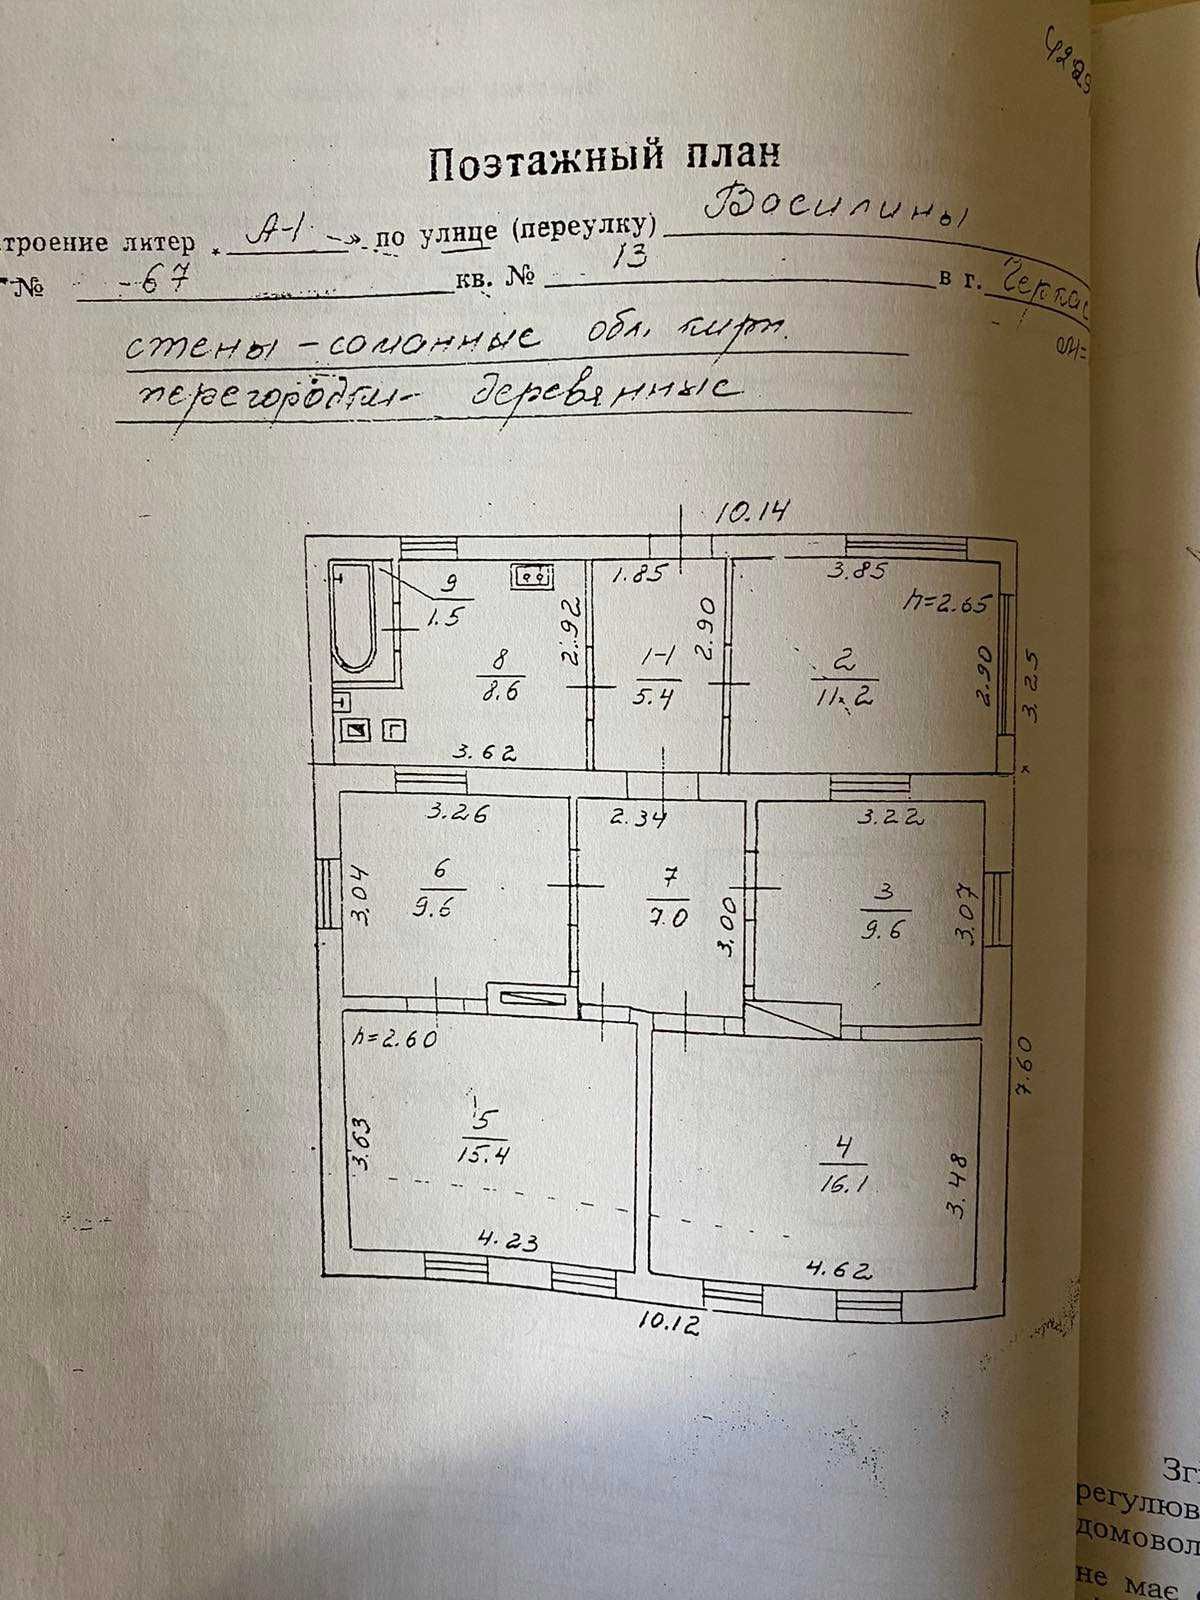 Поэтажный план
троение литер „ А-1 " по улице (переулку) Василины
№ 67 кв. № 13 в г. Черкас
стены - саманные обл. кирп.
перегородки - деревянные
10.14
1.85
3.85
9
1.5
h=2.65
2.92
2.90
2.90
3.25
8
8.6
1-1
5.4
2
11.2
3.62
3.26
2.34
3.22
3.04
6
9.6
7
7.0
3.00
3
9.6
3.07
h=2.60
7.60
3.63
5
15.4
4
16.1
3.48
4.23
4.62
10.12
Згі
регулюв
домовол
не має